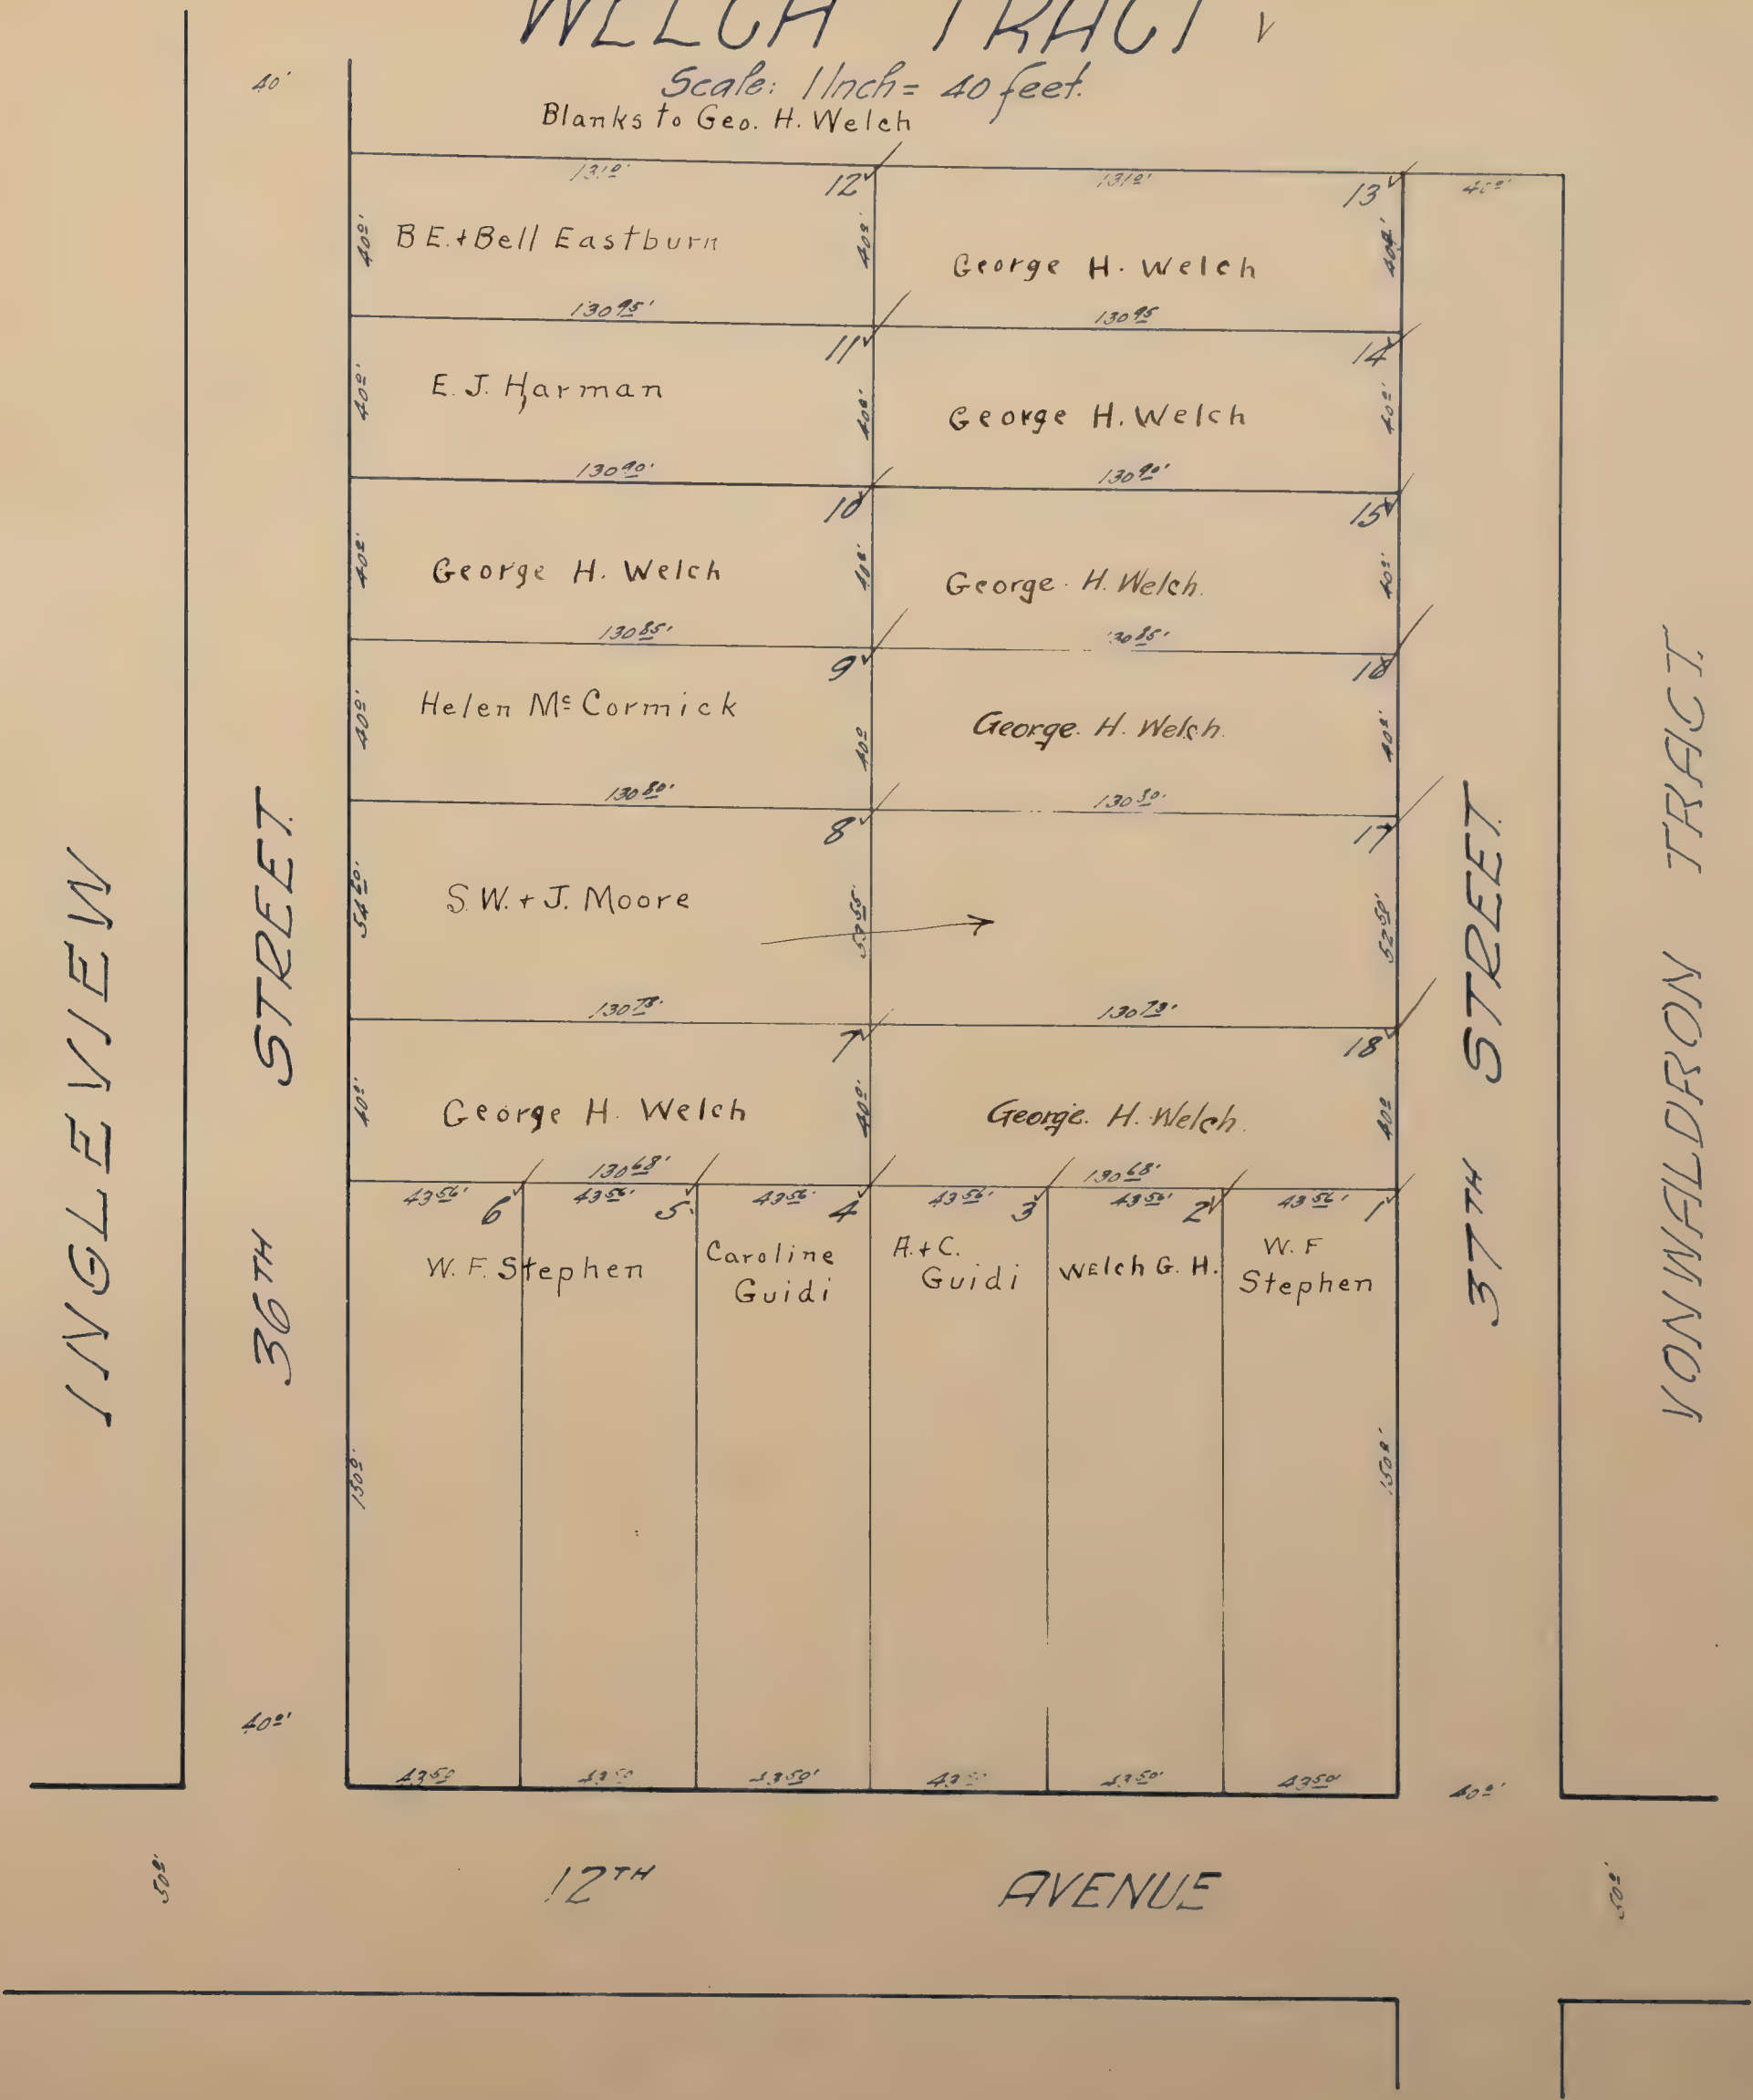 WELCH TRACT
Scale: 1 Inch = 40 feet.
Blanks to Geo. H. Welch
40'
131.0'
12
131.0'
13
40.0'
40.0'
B.E. + Bell Eastburn
40.0'
George H. Welch
40.0'
130.95'
11
130.95
14
40.0'
E. J. Harman
40.0'
George H. Welch
40.0'
130.90'
10
130.90'
15
40.0'
George H. Welch
40.0'
George H. Welch.
40.0'
130.85'
9
130.85'
16
40.0'
Helen Mc Cormick
40.0
George. H. Welch.
40.0'
130.80'
8
130.80'
17
54.60'
S. W. + J. Moore
53.55'
52.50'
130.75'
7
130.75'
18
40.0'
George H. Welch
40.0'
George. H. Welch.
40.0
130.68'
130.68'
43.56'
6
43.56'
5
43.56'
4
43.56'
3
43.56'
2
43.56'
1
W. F. Stephen
Caroline
Guidi
A. + C.
Guidi
Welch G. H.
W. F
Stephen
150.0'
150.0'
40.0'
43.50
43.50
43.50'
43.50
43.50'
43.50'
40.0'
INGLEVIEW
36TH STREET.
37TH STREET.
VONWALDRON TRACT.
50.0'
12TH AVENUE
50.0'